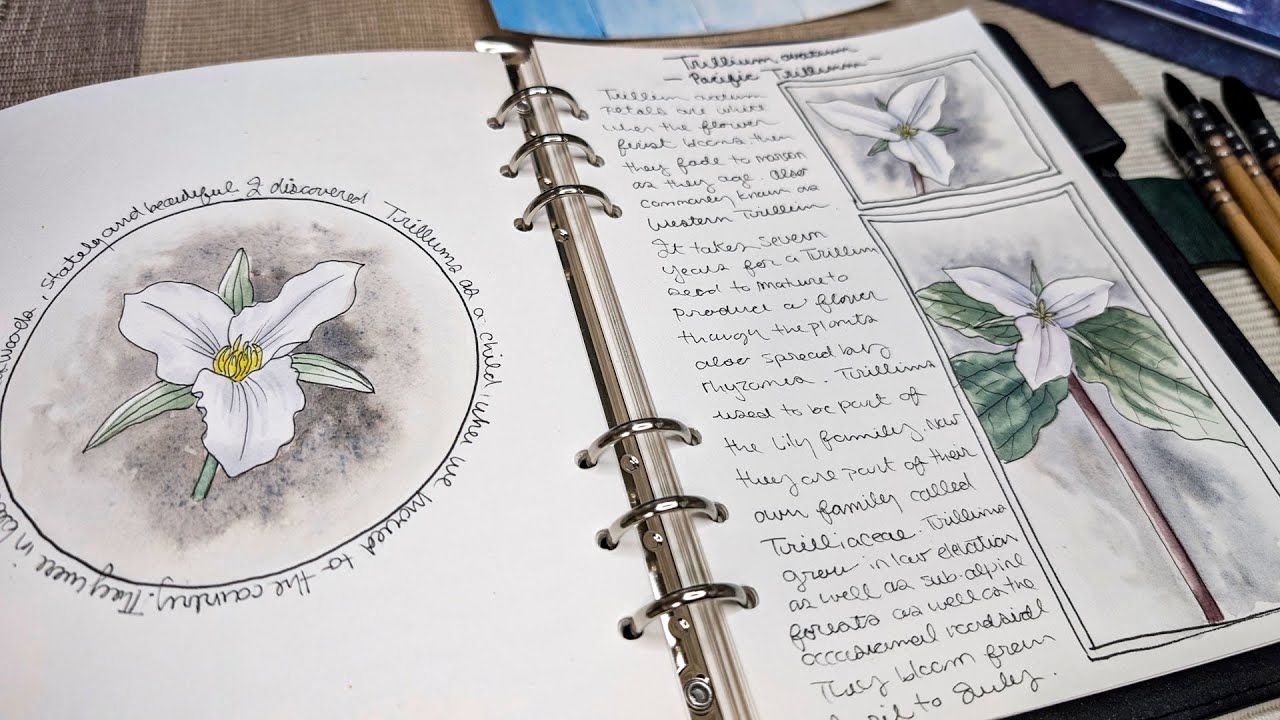 woods, stately and beautiful I discovered Trilliums as a child, when we moved to the country. They were in
Trillium ovatum
- Pacific Trillium -
Trillium ovatum
petals are white
when the flower
first blooms then
they fade to maroon
as they age. Also
commonly known as
Western Trillium.
It takes severn
years for a Trillium
seed to mature to
produce a flower
though the plants
also spread by
rhyzomes. Trilliums
used to be part of
the lily family, now
they are part of their
own family called
Trilliaceae. Trilliums
grow in low elevation
as well as sub-alpine
forests as well as the
occasional roadside
They bloom from
April to July.